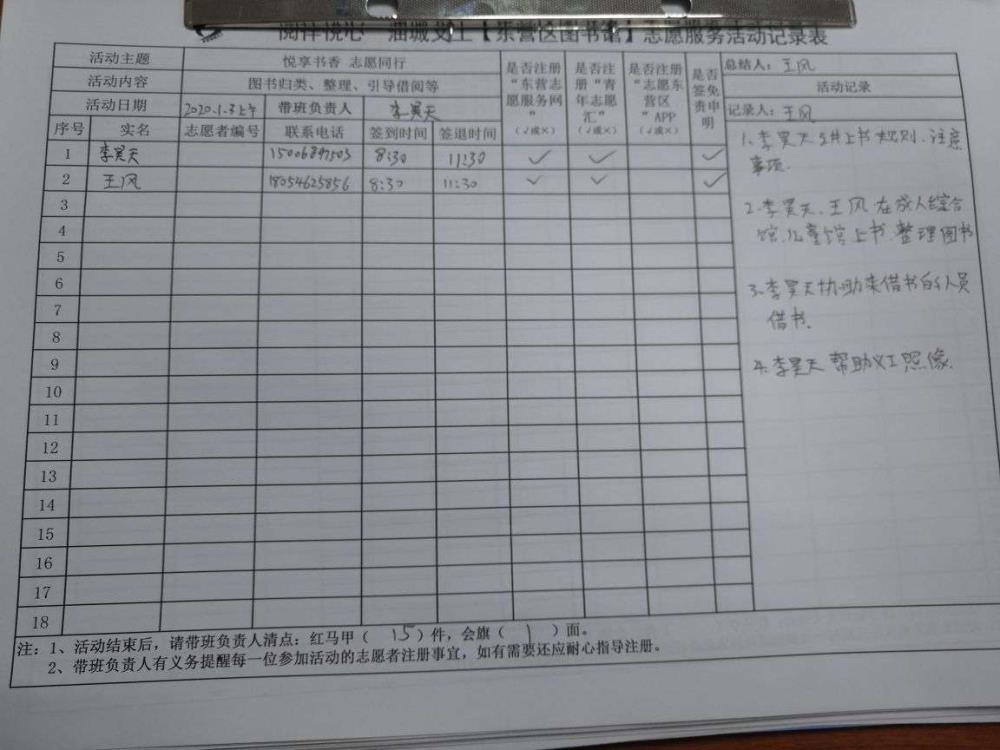 阅祥悦心 油城义工【东营区图书馆】志愿服务活动记录表
活动主题 悦享书香 志愿同行 是否注册“东营志愿服务网”（√或×） 是否注册“青年志愿汇”（√或×） 是否注册“志愿东营区”APP（√或×） 是否签免责申明 总结人：王风
活动内容 图书归类、整理、引导借阅等 活动记录
活动日期 2020.1.3上午 带班负责人 李昊天 记录人：王风
序号 实名 志愿者编号 联系电话 签到时间 签退时间
1 李昊天 8:30 11:30 √ √ √
2 王风 18054625856 8:30 11:30 √ √ √
3
4
5
6
7
8
9
10
11
12
13
14
15
16
17
18
1、李昊天 上书规则、注意
事项.
2、李昊天、王风在成人综合
馆、儿童馆上书、整理图书
3、李昊天协助来借书的人员
借书.
4、李昊天帮助义工照像.
注：1、活动结束后，请带班负责人清点：红马甲（15）件，会旗（1）面。
2、带班负责人有义务提醒每一位参加活动的志愿者注册事宜，如有需要还应耐心指导注册。